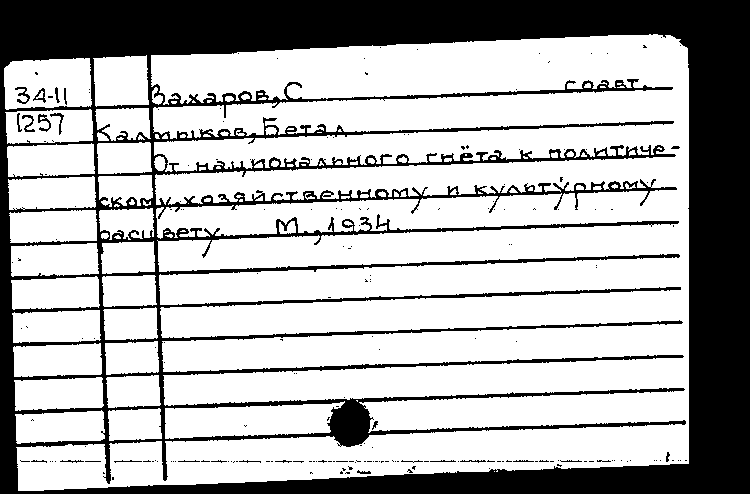 34-11 Захаров, С соавт.
1257
Калмыков, Бетал
От национального гнёта к политиче-
скому, хозяйственному и культурному
расцвету М., 1934.